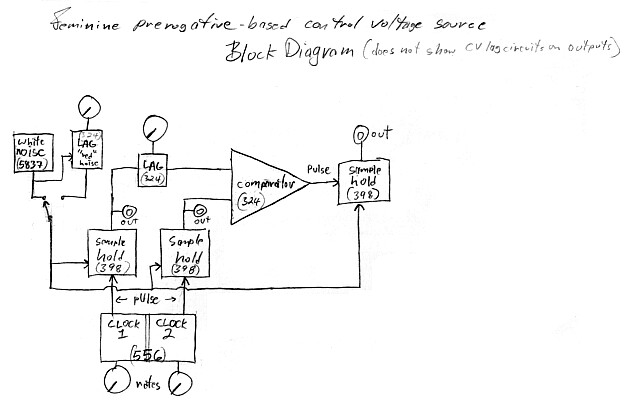 Feminine prerogative-based control voltage source
Block Diagram (does not show CV lag circuits on outputs)
white
noise
(5837)
(324)
LAG
"red"
noise
LAG
(324)
comparator
(324)
Pulse
out
sample
hold
(398)
out
out
sample
hold
(398)
Sample
hold
(398)
← pulse →
CLOCK
1
CLOCK
2
(556)
rates